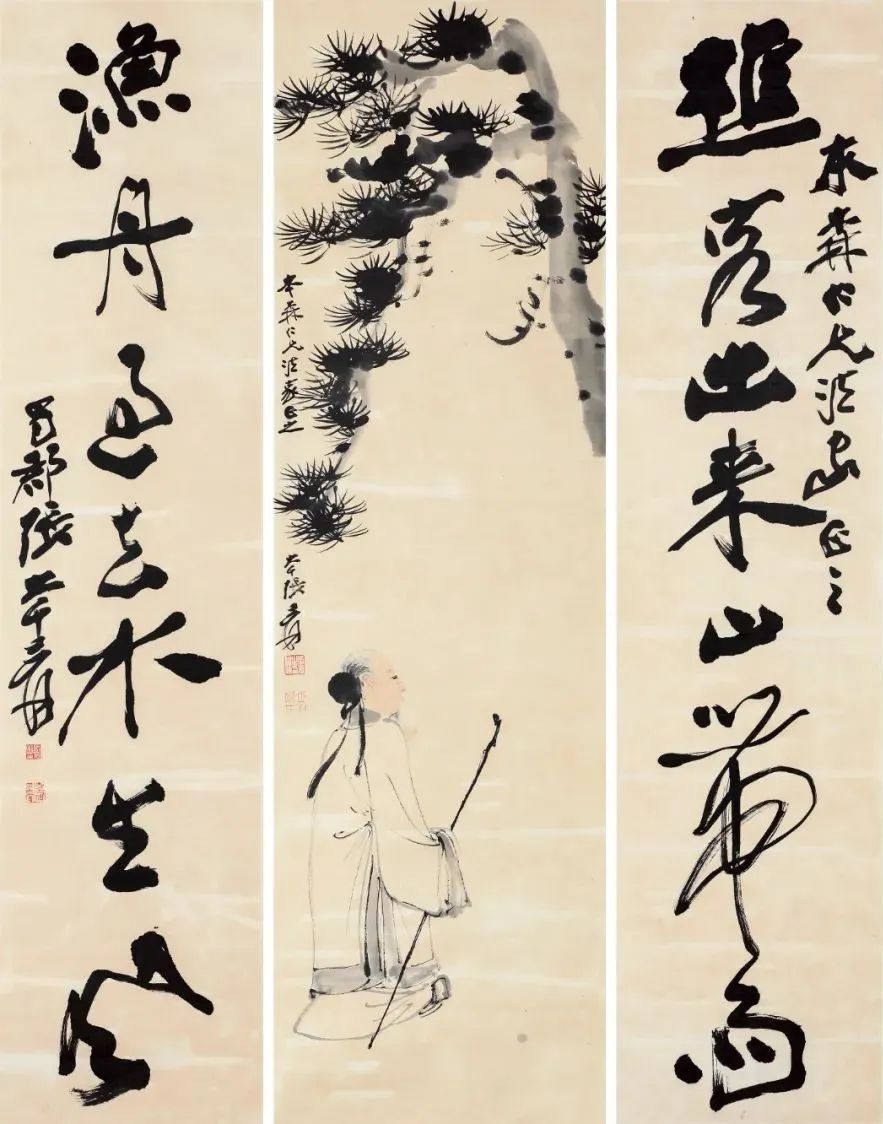 樵客出来山帶雨
森仁兄法家正之
森仁兄法家正之
大千張爰
漁舟過去水生風
蜀郡張大千爰